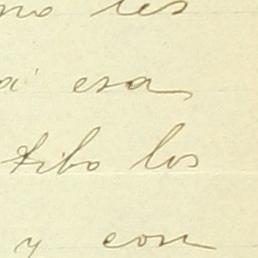 no les
a esa
tibo los
y con